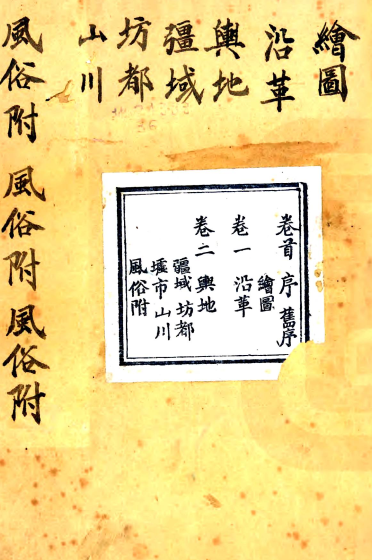 繪圖
沿革
輿地
疆域
坊都
山川
風俗附風俗附風俗附
卷首 序 舊序
繪圖
卷一 沿革
卷二 輿地
疆域 坊都
墟市 山川
風俗附